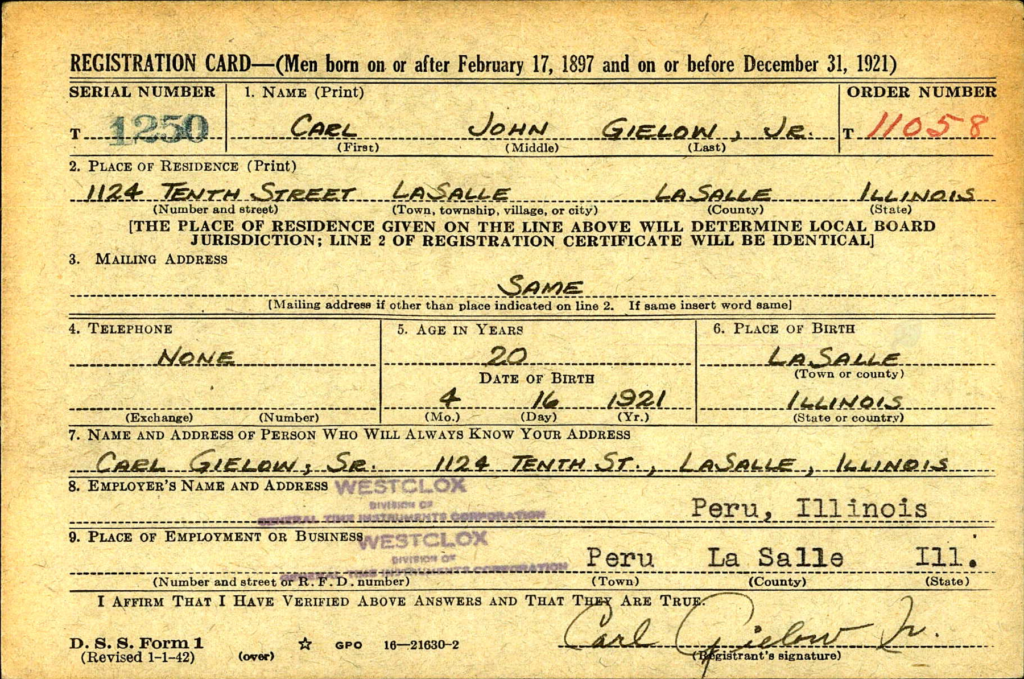 REGISTRATION CARD—(Men born on or after February 17, 1897 and on or before December 31, 1921)
SERIAL NUMBER 1. NAME (Print) ORDER NUMBER
T 1250 CARL JOHN GIELOW, JR. T 11058
(First) (Middle) (Last)
2. PLACE OF RESIDENCE (Print)
1124 TENTH STREET LASALLE LASALLE ILLINOIS
(Number and street) (Town, township, village, or city) (County) (State)
[THE PLACE OF RESIDENCE GIVEN ON THE LINE ABOVE WILL DETERMINE LOCAL BOARD
JURISDICTION; LINE 2 OF REGISTRATION CERTIFICATE WILL BE IDENTICAL]
3. MAILING ADDRESS
SAME
[Mailing address if other than place indicated on line 2. If same insert word same]
4. TELEPHONE 5. AGE IN YEARS 6. PLACE OF BIRTH
NONE 20 LASALLE
DATE OF BIRTH (Town or county)
4 16 1921 ILLINOIS
(Exchange) (Number) (Mo.) (Day) (Yr.) (State or country)
7. NAME AND ADDRESS OF PERSON WHO WILL ALWAYS KNOW YOUR ADDRESS
CARL GIELOW, SR. 1124 TENTH ST., LASALLE, ILLINOIS
8. EMPLOYER'S NAME AND ADDRESS WESTCLOX
DIVISION OF
GENERAL TIME INSTRUMENTS CORPORATION Peru, Illinois
9. PLACE OF EMPLOYMENT OR BUSINESS WESTCLOX
DIVISION OF
GENERAL TIME INSTRUMENTS CORPORATION Peru La Salle Ill.
(Number and street or R. F. D. number) (Town) (County) (State)
I AFFIRM THAT I HAVE VERIFIED ABOVE ANSWERS AND THAT THEY ARE TRUE.
Carl Gielow Jr.
D. S. S. Form 1 ☆ GPO 16—21630-2
(Revised 1-1-42) (over) (Registrant's signature)